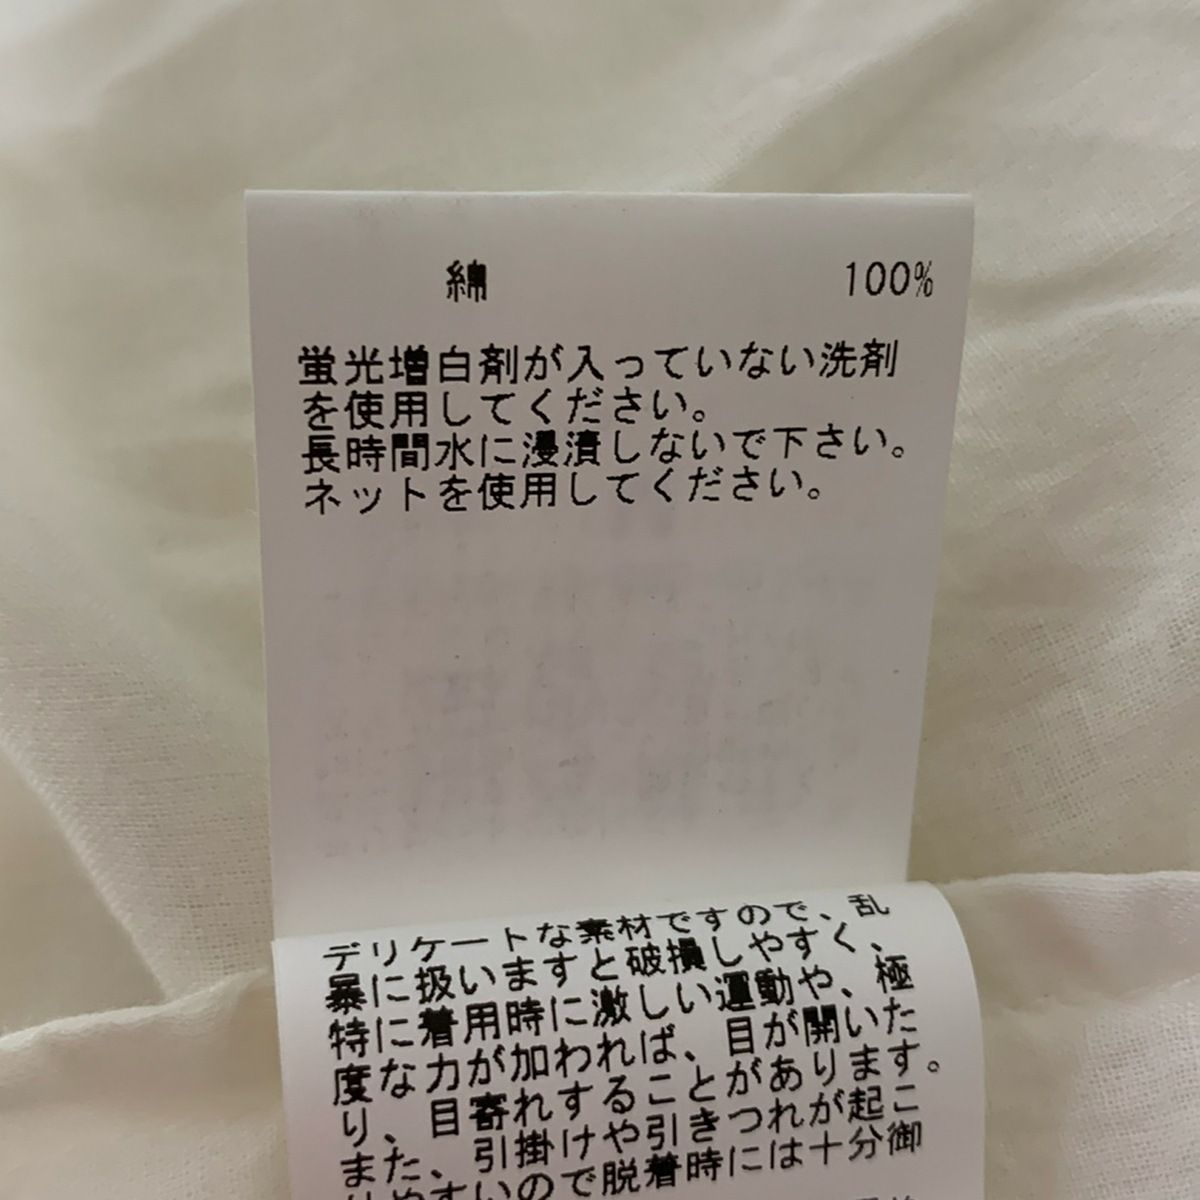 綿 100%
蛍光増白剤が入っていない洗剤
を使用してください。
長時間水に浸漬しないで下さい。
ネットを使用してください。
デリケートな素材ですので、乱
暴に扱いますと破損しやすく、
特に着用時に激しい運動や、極
度な力が加われば、目が開いた
り、目寄れすることがあります。
また、引掛けや引きつれが起こ
りやすいので脱着時には十分御